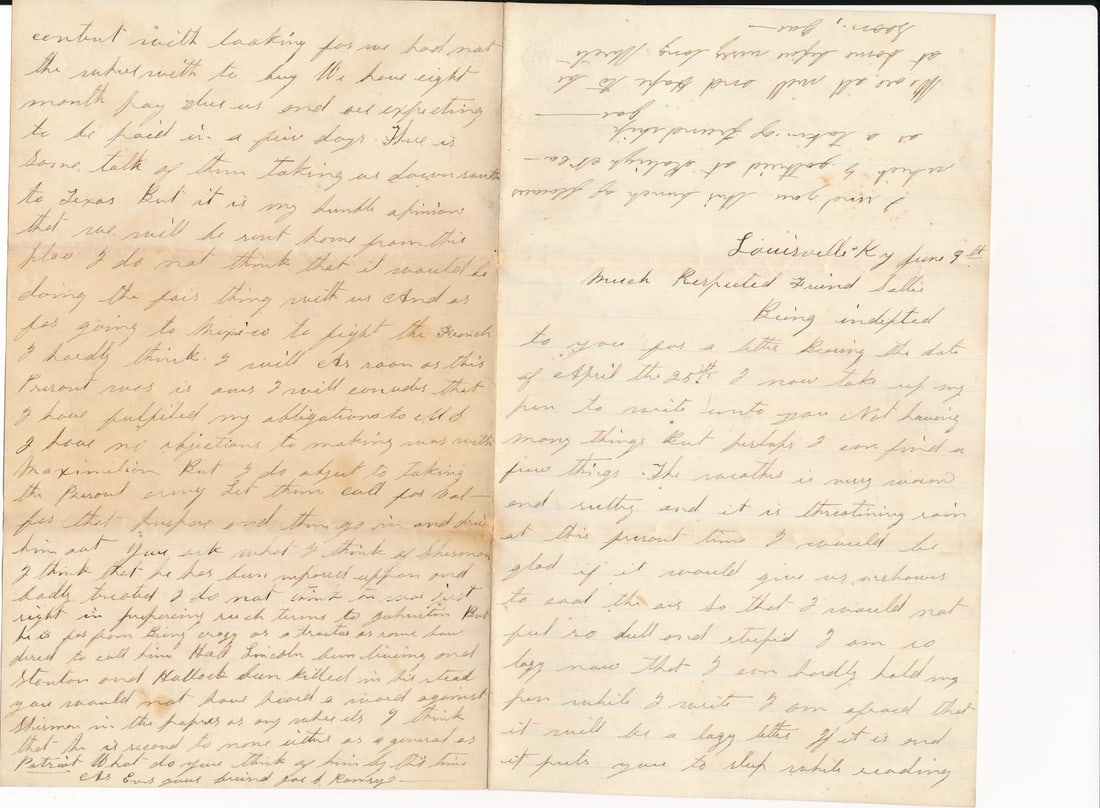 Louisville Ky June 9th
Much Respected Friend Sallie
Being indepted
to you for a letter Bearing the date
of April the 25th. I now take up my
pen to write unto you Not having
many things But perhaps I can find a
few things. The weather is very warm
and sultry and it is threatining rain
at this present time I would be
glad if it would give us a shower
to cool the air so that I would not
feel so dull and stupid I am so
lazy now that I can hardly hold my
pen while I write I am afraid that
it will be a lazy letter If it is and
it puts you to sleep while reading
content with looking for we had not
the wherewith to buy We have eight
month pay due us and are expecting
to be paid in a few days. There is
some talk of them taking us down south
to Texas But it is my humble opinion
that we will be sent home from this
place I do not think that it would be
doing the fair thing with us And as
for going to Mixico to fight the French
I hardly think I will As soon as this
Present war is over I will consider that
I have fulfiled my obligations to U S
I have no objections to making war with
Maximilion But I do object to taking
the Present army Let them call for Vol-
for that purpose and then go in and drive
him out You ask what I think of Sherman
I think that he has been imposed uppon and
badly treated I do not
right in preparing such terms to Johnston But
he is far from Being crazy or a traitor as some have
dired to call him Had Lincoln been living and
Stanton and Halleck been killed in his stead
you would not have heard a word against
Sherman in the papers or any where els I think
that he is second to none either as a general or
Patriot What do you think of him by this time
As Ever your friend Jas S. Ramsey
I send you this bunch of flowers
which I gathered at Raleigh N Ca—
as a token of friendship
Jas—
We are all well and Hope to be
at home before very long Write
Soon, Jas—